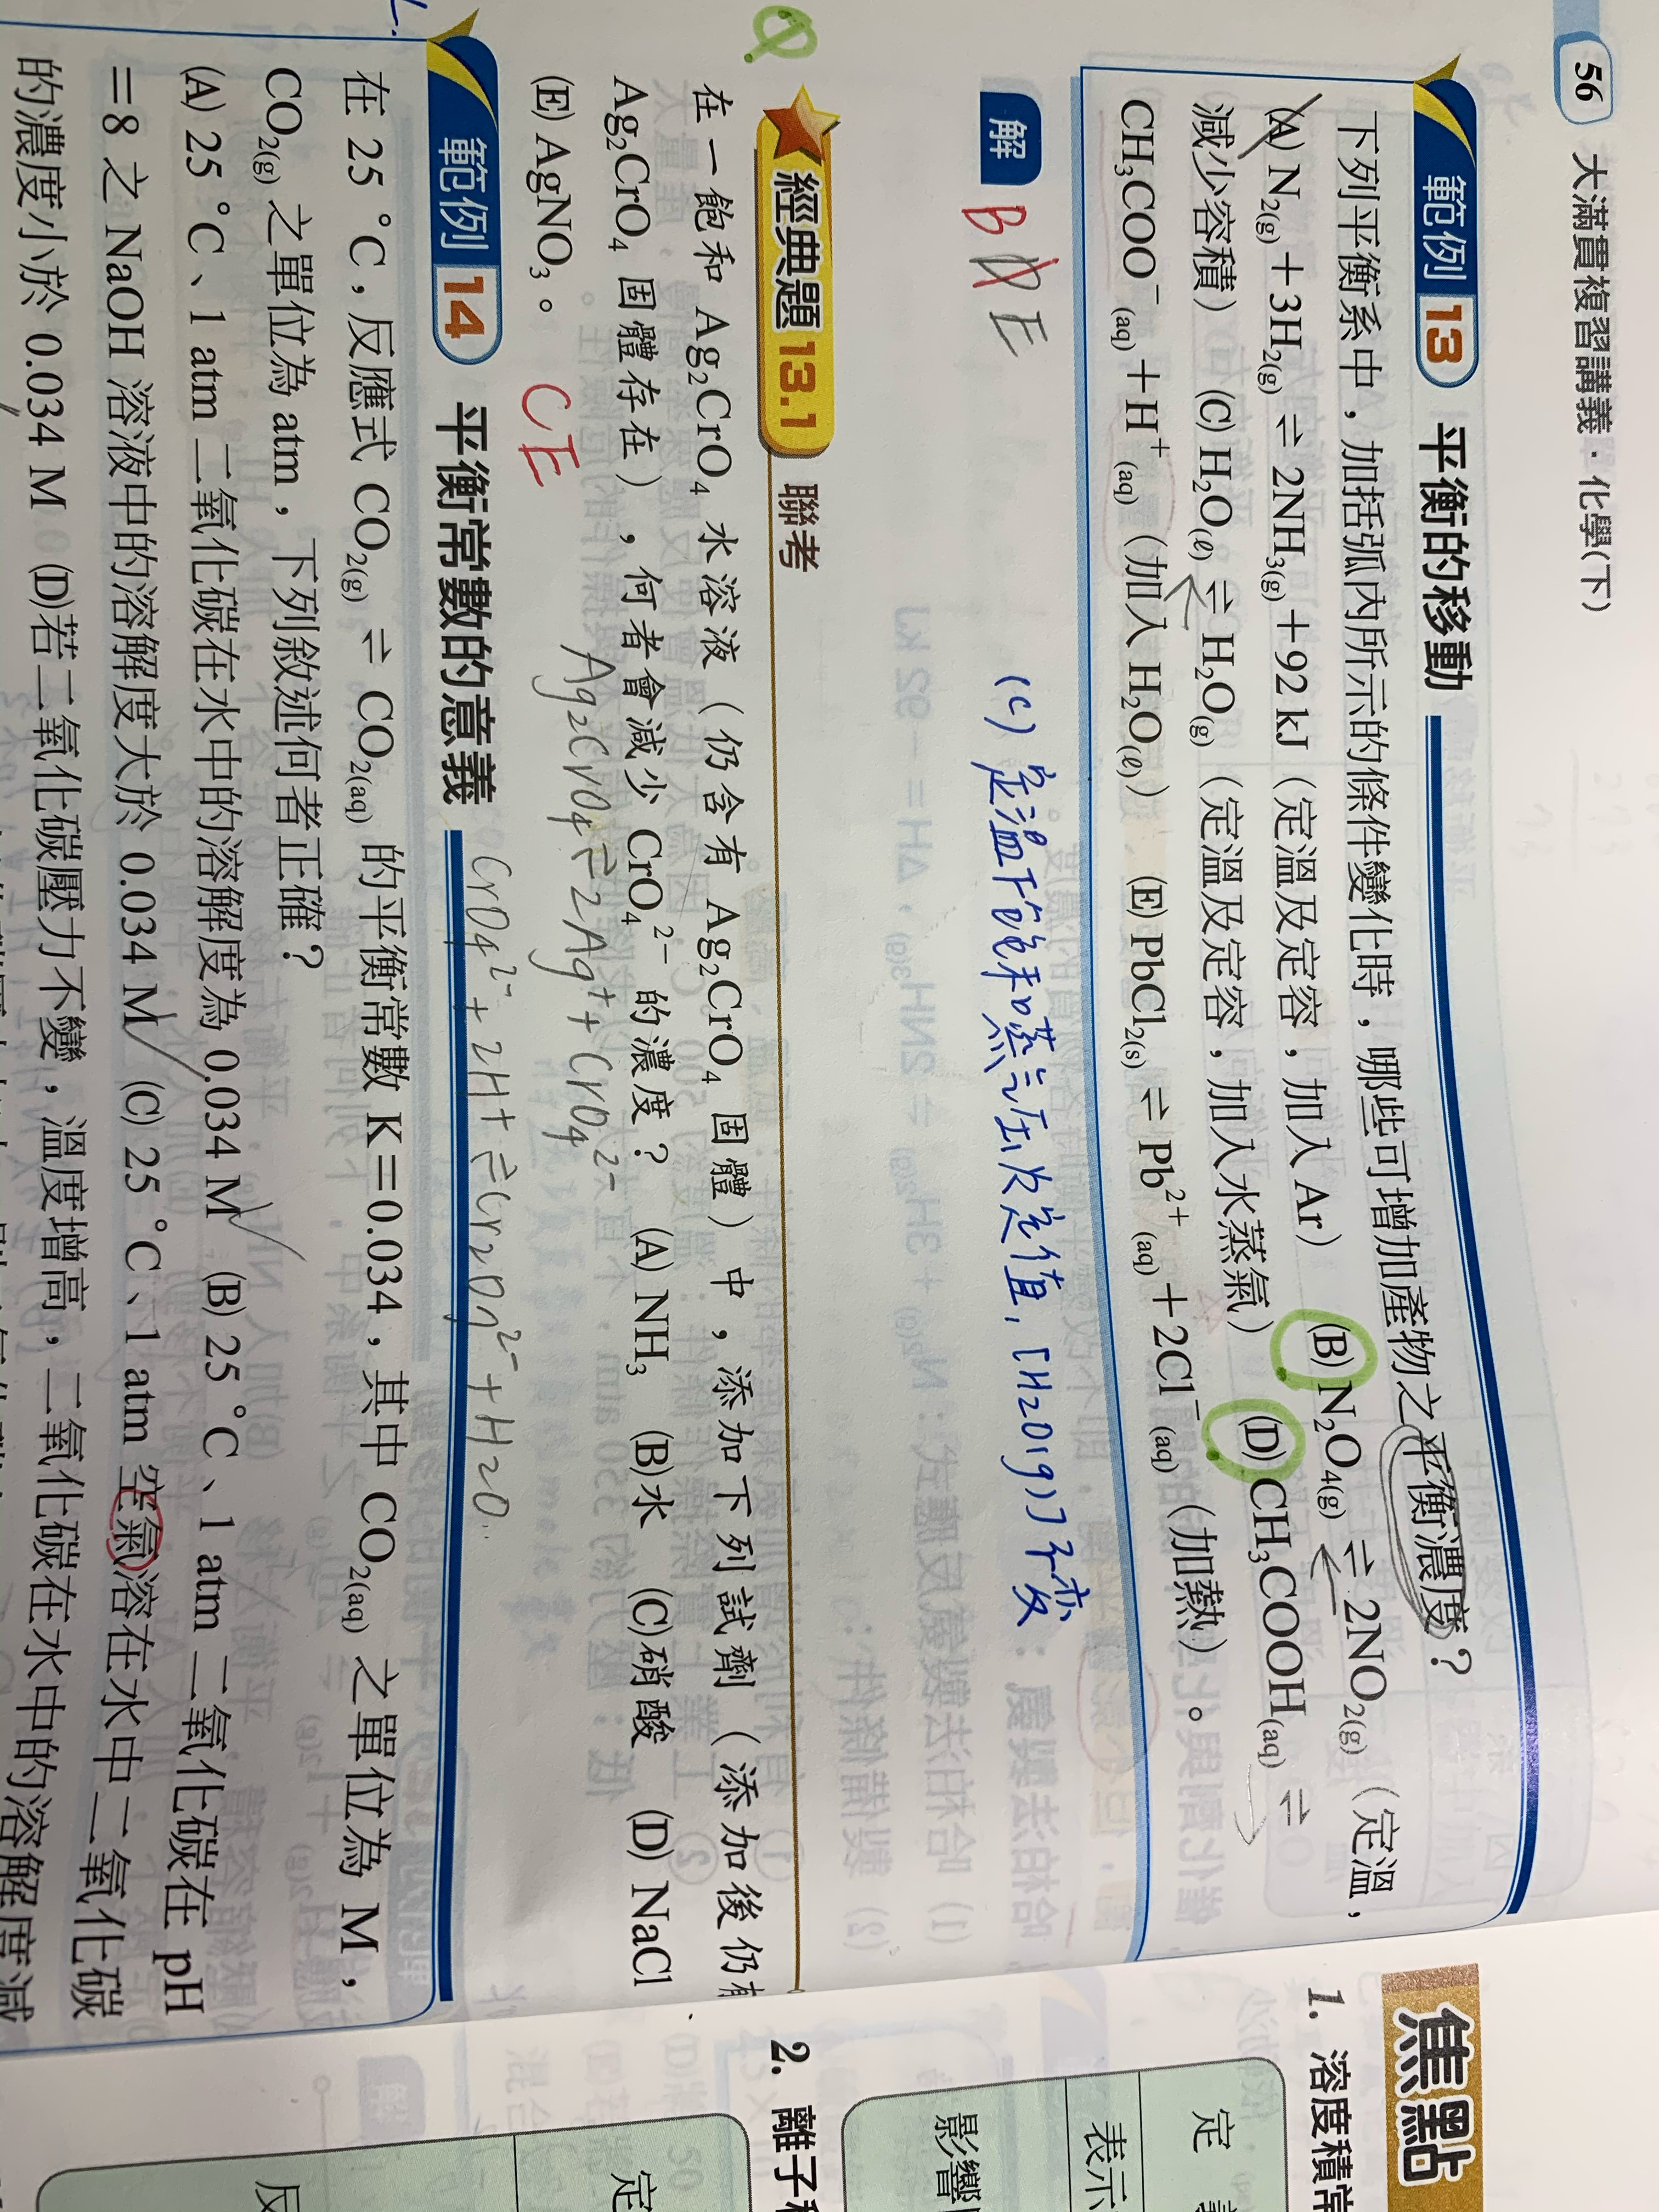 56 大滿貫複習講義．化學(下)
範例 13 平衡的移動
下列平衡系中，加括弧內所示的條件變化時，哪些可增加產物之平衡濃度？
(A) N₂(g)＋3H₂(g) ⇌ 2NH₃(g)＋92 kJ（定溫及定容，加入 Ar） (B) N₂O₄(g) ⇌ 2NO₂(g)（定溫，
減少容積） (C) H₂O(ℓ) ⇌ H₂O(g)（定溫及定容，加入水蒸氣） (D) CH₃COOH(aq) ⇌
CH₃COO⁻(aq)＋H⁺(aq)（加入 H₂O(ℓ)） (E) PbCl₂(s) ⇌ Pb²⁺(aq)＋2Cl⁻(aq)（加熱）。
(C) 定溫下飽和蒸氣压为定值, [H₂O(g)] 不变
解 B D E
經典題 13.1 聯考
在一飽和 Ag₂CrO₄ 水溶液（仍含有 Ag₂CrO₄ 固體）中，添加下列試劑（添加後仍有
Ag₂CrO₄ 固體存在），何者會減少 CrO₄²⁻ 的濃度？ (A) NH₃ (B)水 (C)硝酸 (D) NaCl
(E) AgNO₃。
Ag₂CrO₄ ⇌ 2Ag⁺ + CrO₄²⁻
C E
CrO₄²⁻ + 2H⁺ ⇌ Cr₂O₇²⁻ + H₂O
範例 14 平衡常數的意義
在 25 °C，反應式 CO₂(g) ⇌ CO₂(aq) 的平衡常數 K＝0.034，其中 CO₂(aq) 之單位為 M，
CO₂(g) 之單位為 atm，下列敘述何者正確？
(A) 25 °C、1 atm 二氧化碳在水中的溶解度為 0.034 M (B) 25 °C、1 atm 二氧化碳在 pH
＝8 之 NaOH 溶液中的溶解度大於 0.034 M (C) 25 °C、1 atm 空氣溶在水中二氧化碳
的濃度小於 0.034 M (D)若二氧化碳壓力不變，溫度增高，二氧化碳在水中的溶解度減
焦點
1. 溶度積常
定
表示
影響
2. 離子
定
反